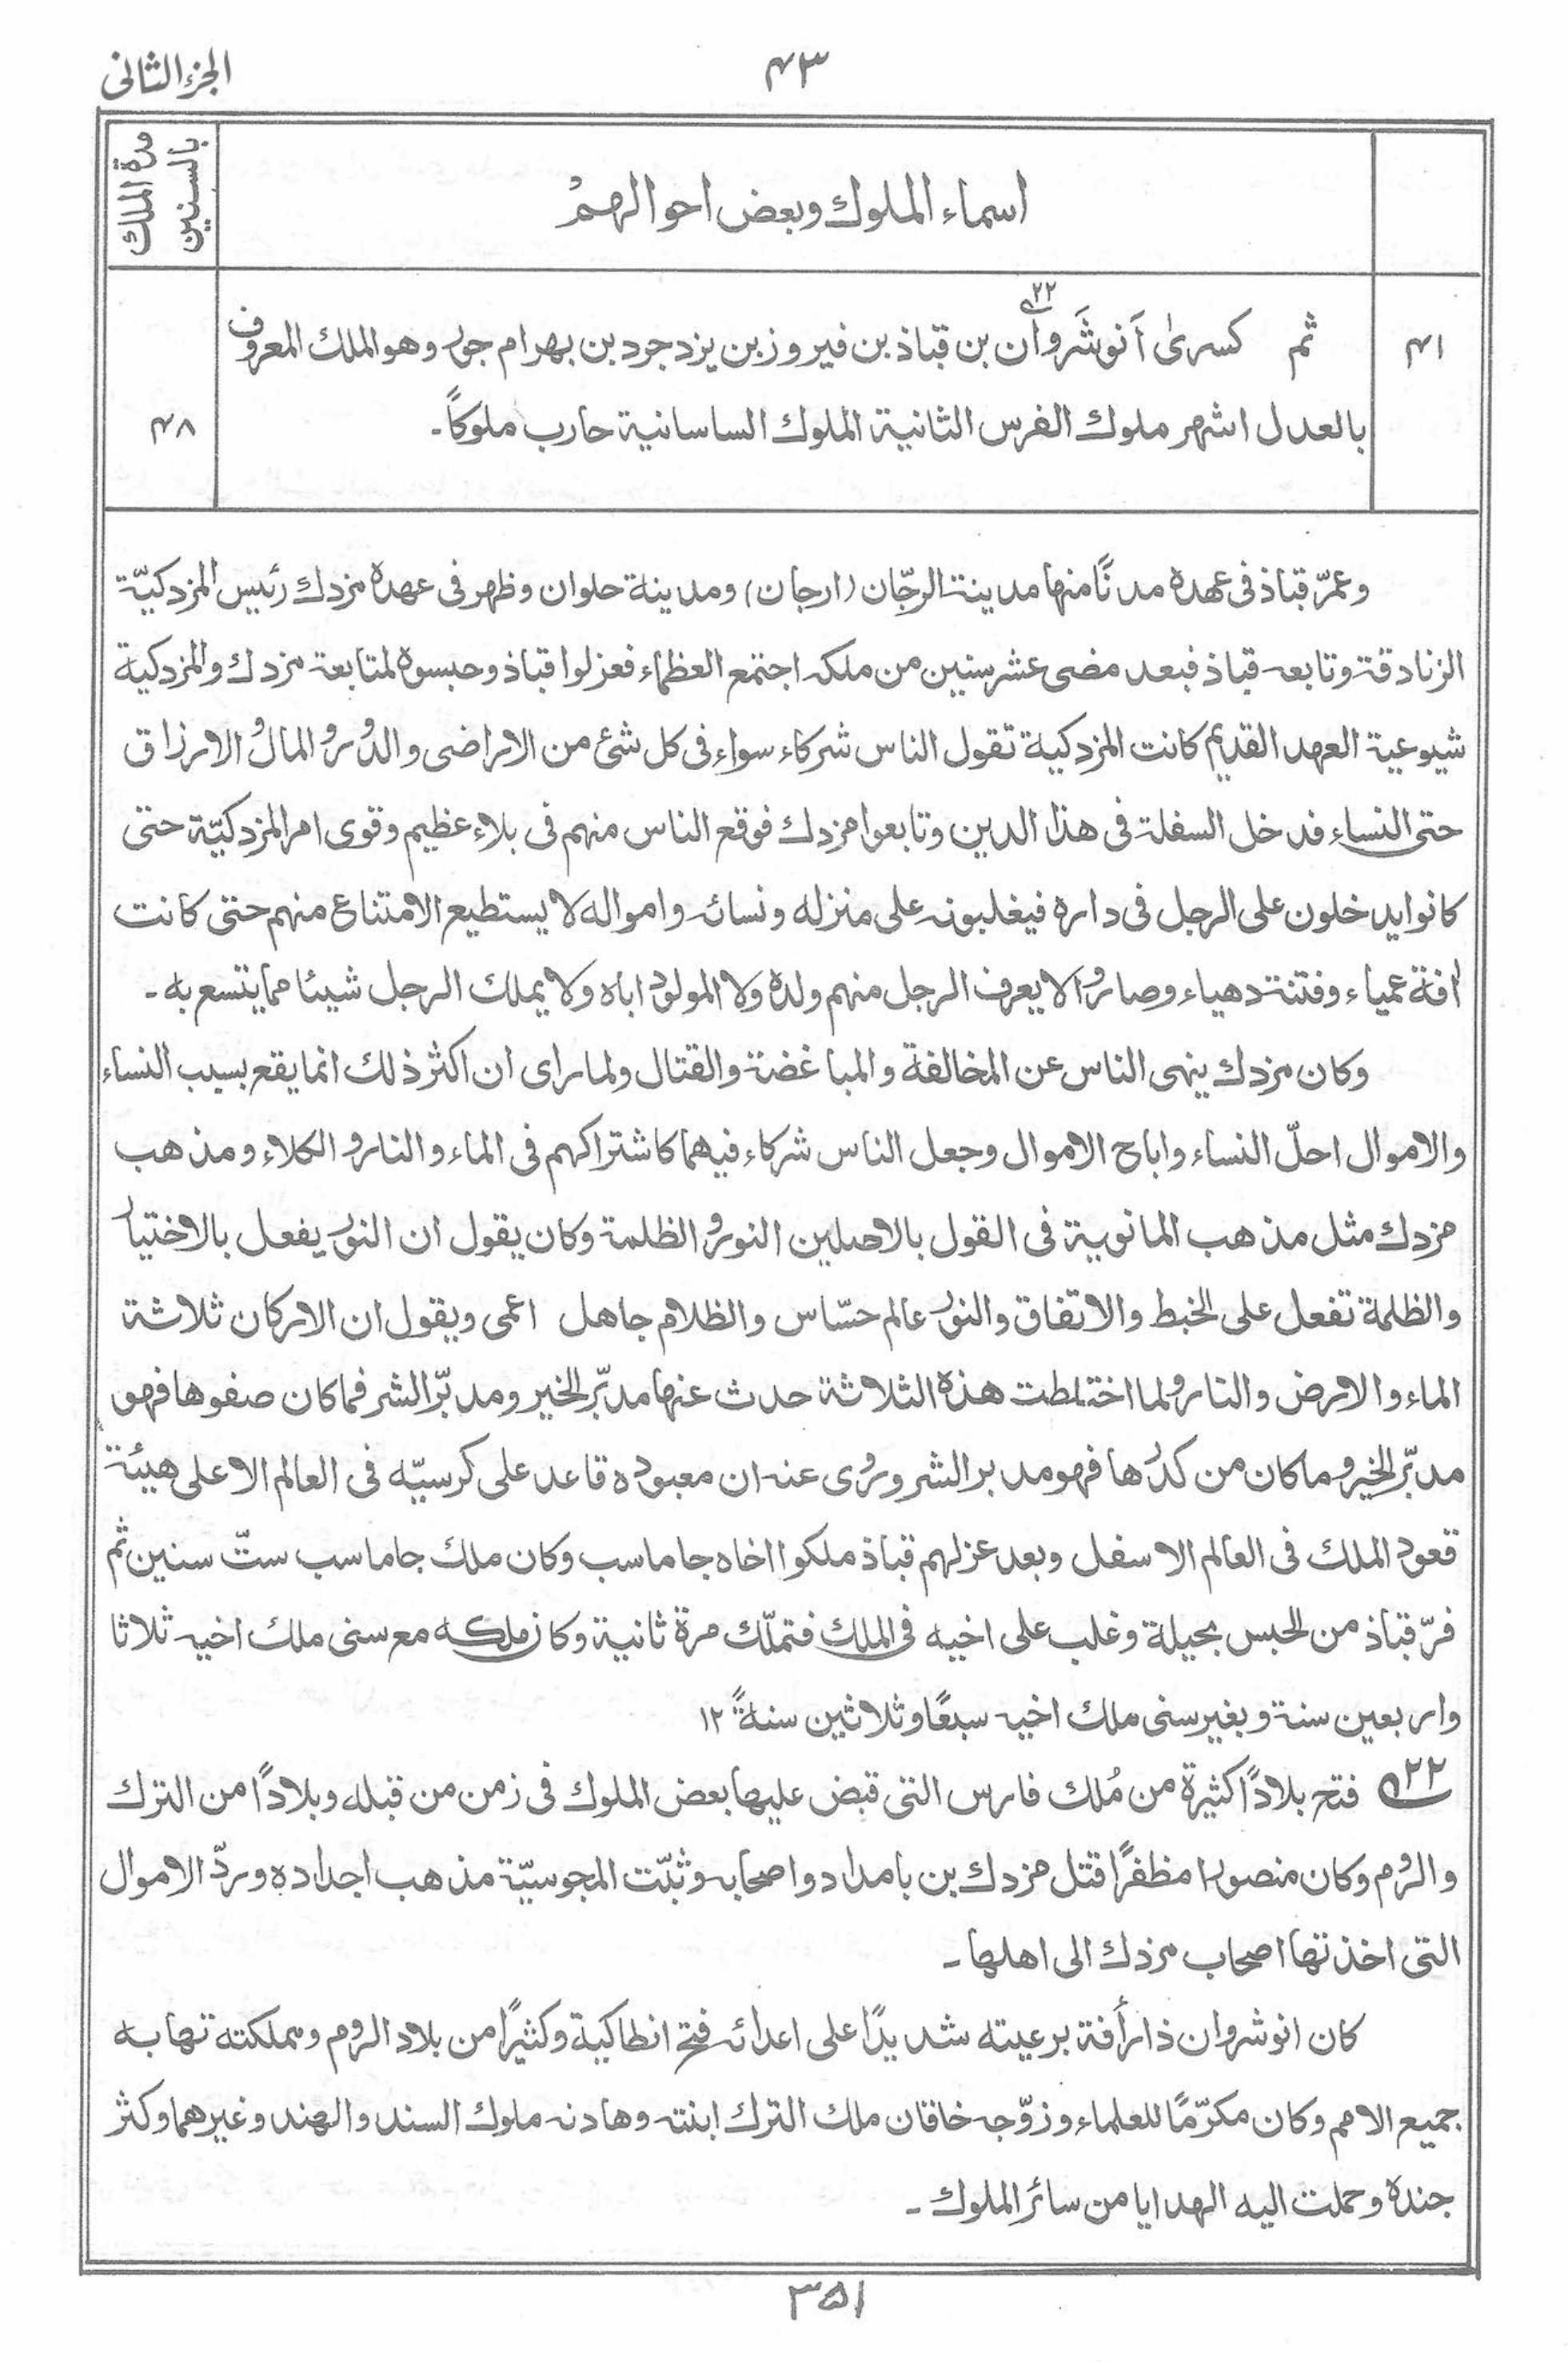 الجزء الثانی
۴۳
مدة الملك
بالسنين
اسماء الملوك وبعض احوالهم
۴۱
ثم كسرىٰ اَنوشَروان بن قباذ بن فيروز بن يزدجرد بن بهرام جور وهو الملك المعروف
۲۲
بالعدل اشهر ملوك الفرس الثانية الملوك الساسانية حارب ملوكاً۔
۴۸
وعمّر قباذ فی عهده مدنًا منها مدينة الرجّان (ارجان) ومدينة حلوان وظهر فی عهده مزدك رئيس المزدكيّة
الزنادقة وتابعه قباذ فبعد مضی عشر سنين من ملكه اجتمع العظماء فعزلوا قباذ وحبسوه لمتابعة مزدك والمزدكية
شيوعية العهد القديم كانت المزدكية تقول الناس شركاء سواء فی كل شئ من الاراضی والدُور والمال والارزاق
حتی النساء فدخل السفلة فی هذا الدين وتابعوا مزدك فوقع الناس منهم فی بلاء عظيم وقوی امر المزدكيّة حتی
كانوا يدخلون علی الرجل فی داره فيغلبونه علی منزله ونسائه وامواله لا يستطيع الامتناع منهم حتی كانت
اٰفة عمياء وفتنة دهياء وصاروا لا يعرف الرجل منهم ولده ولا المولود اباه ولا يملك الرجل شيئا مما يتسع به ۔
وكان مزدك ينهی الناس عن المخالفة والمباغضة والقتال ولما رای ان اكثر ذلك انما يقع بسبب النساء
والاموال احلّ النساء واباح الاموال وجعل الناس شركاء فيهما كاشتراكهم فی الماء والنار والكلاء ومذهب
مزدك مثل مذهب المانوية فی القول بالاصلين النور والظلمة وكان يقول ان النور يفعل بالاختيار
والظلمة تفعل علی الخبط والاتفاق والنور عالم حسّاس والظلام جاهل اعمی ويقول ان الاركان ثلاثة
الماء والارض والنار ولما اختلطت هذه الثلاثة حدث عنها مدبّر الخير ومدبّر الشر فما كان صفوها فهو
مدبّر الخير وما كان من كدرها فهو مدبر الشر وروی عنه ان معبوده قاعد علی كرسيّه فی العالم الاعلی هيئة
قعود الملك فی العالم الاسفل وبعد عزلهم قباذ ملكوا اخاه جاماسب وكان ملك جاماسب ستّ سنين ثم
فرّ قباذ من الحبس بحيلة وغلب علی اخيه فی الملك فتملّك مرة ثانية وكان ملكه مع سنی ملك اخيه ثلاثا
واربعين سنة وبغير سنی ملك اخيه سبعًا وثلاثين سنةً ۱۲
۲۲ فتح بلادًا كثيرة من مُلك فارس التی قبض عليها بعض الملوك فی زمن من قبله وبلادًا من الترك
والروم وكان منصورا مظفرًا قتل مزدك بن بامداد واصحابه وثبّت المجوسيّة مذهب اجداده وردّ الاموال
التی اخذتها اصحاب مزدك الی اهلها ۔
كان انوشروان ذا رأفة برعيته شديدًا علی اعدائه فتح انطاكية وكثيرًا من بلاد الروم ومملكته تهابه
جميع الامم وكان مكرّمًا للعلماء وزوّجه خاقان ملك الترك ابنته وهادنه ملوك السند والهند وغيرهما وكثر
جنده وحملت اليه الهدايا من سائر الملوك ۔
۳۵۱